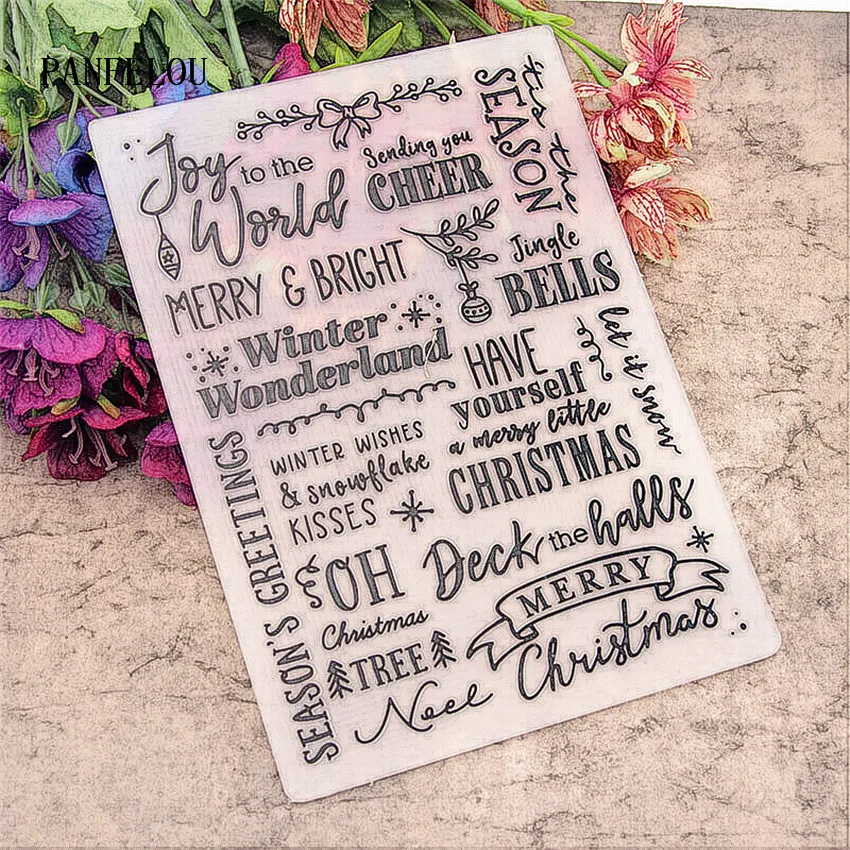 PANFELOU
Joy to the
World
Sending you
CHEER
'tis the
SEASON
MERRY & BRIGHT
Jingle
BELLS
Winter
Wonderland
HAVE
yourself
a merry little
CHRISTMAS
let it snow
WINTER WISHES
& snowflake
KISSES
SEASON'S GREETINGS
OH
Christmas
TREE
Deck the halls
MERRY
Christmas
Noel